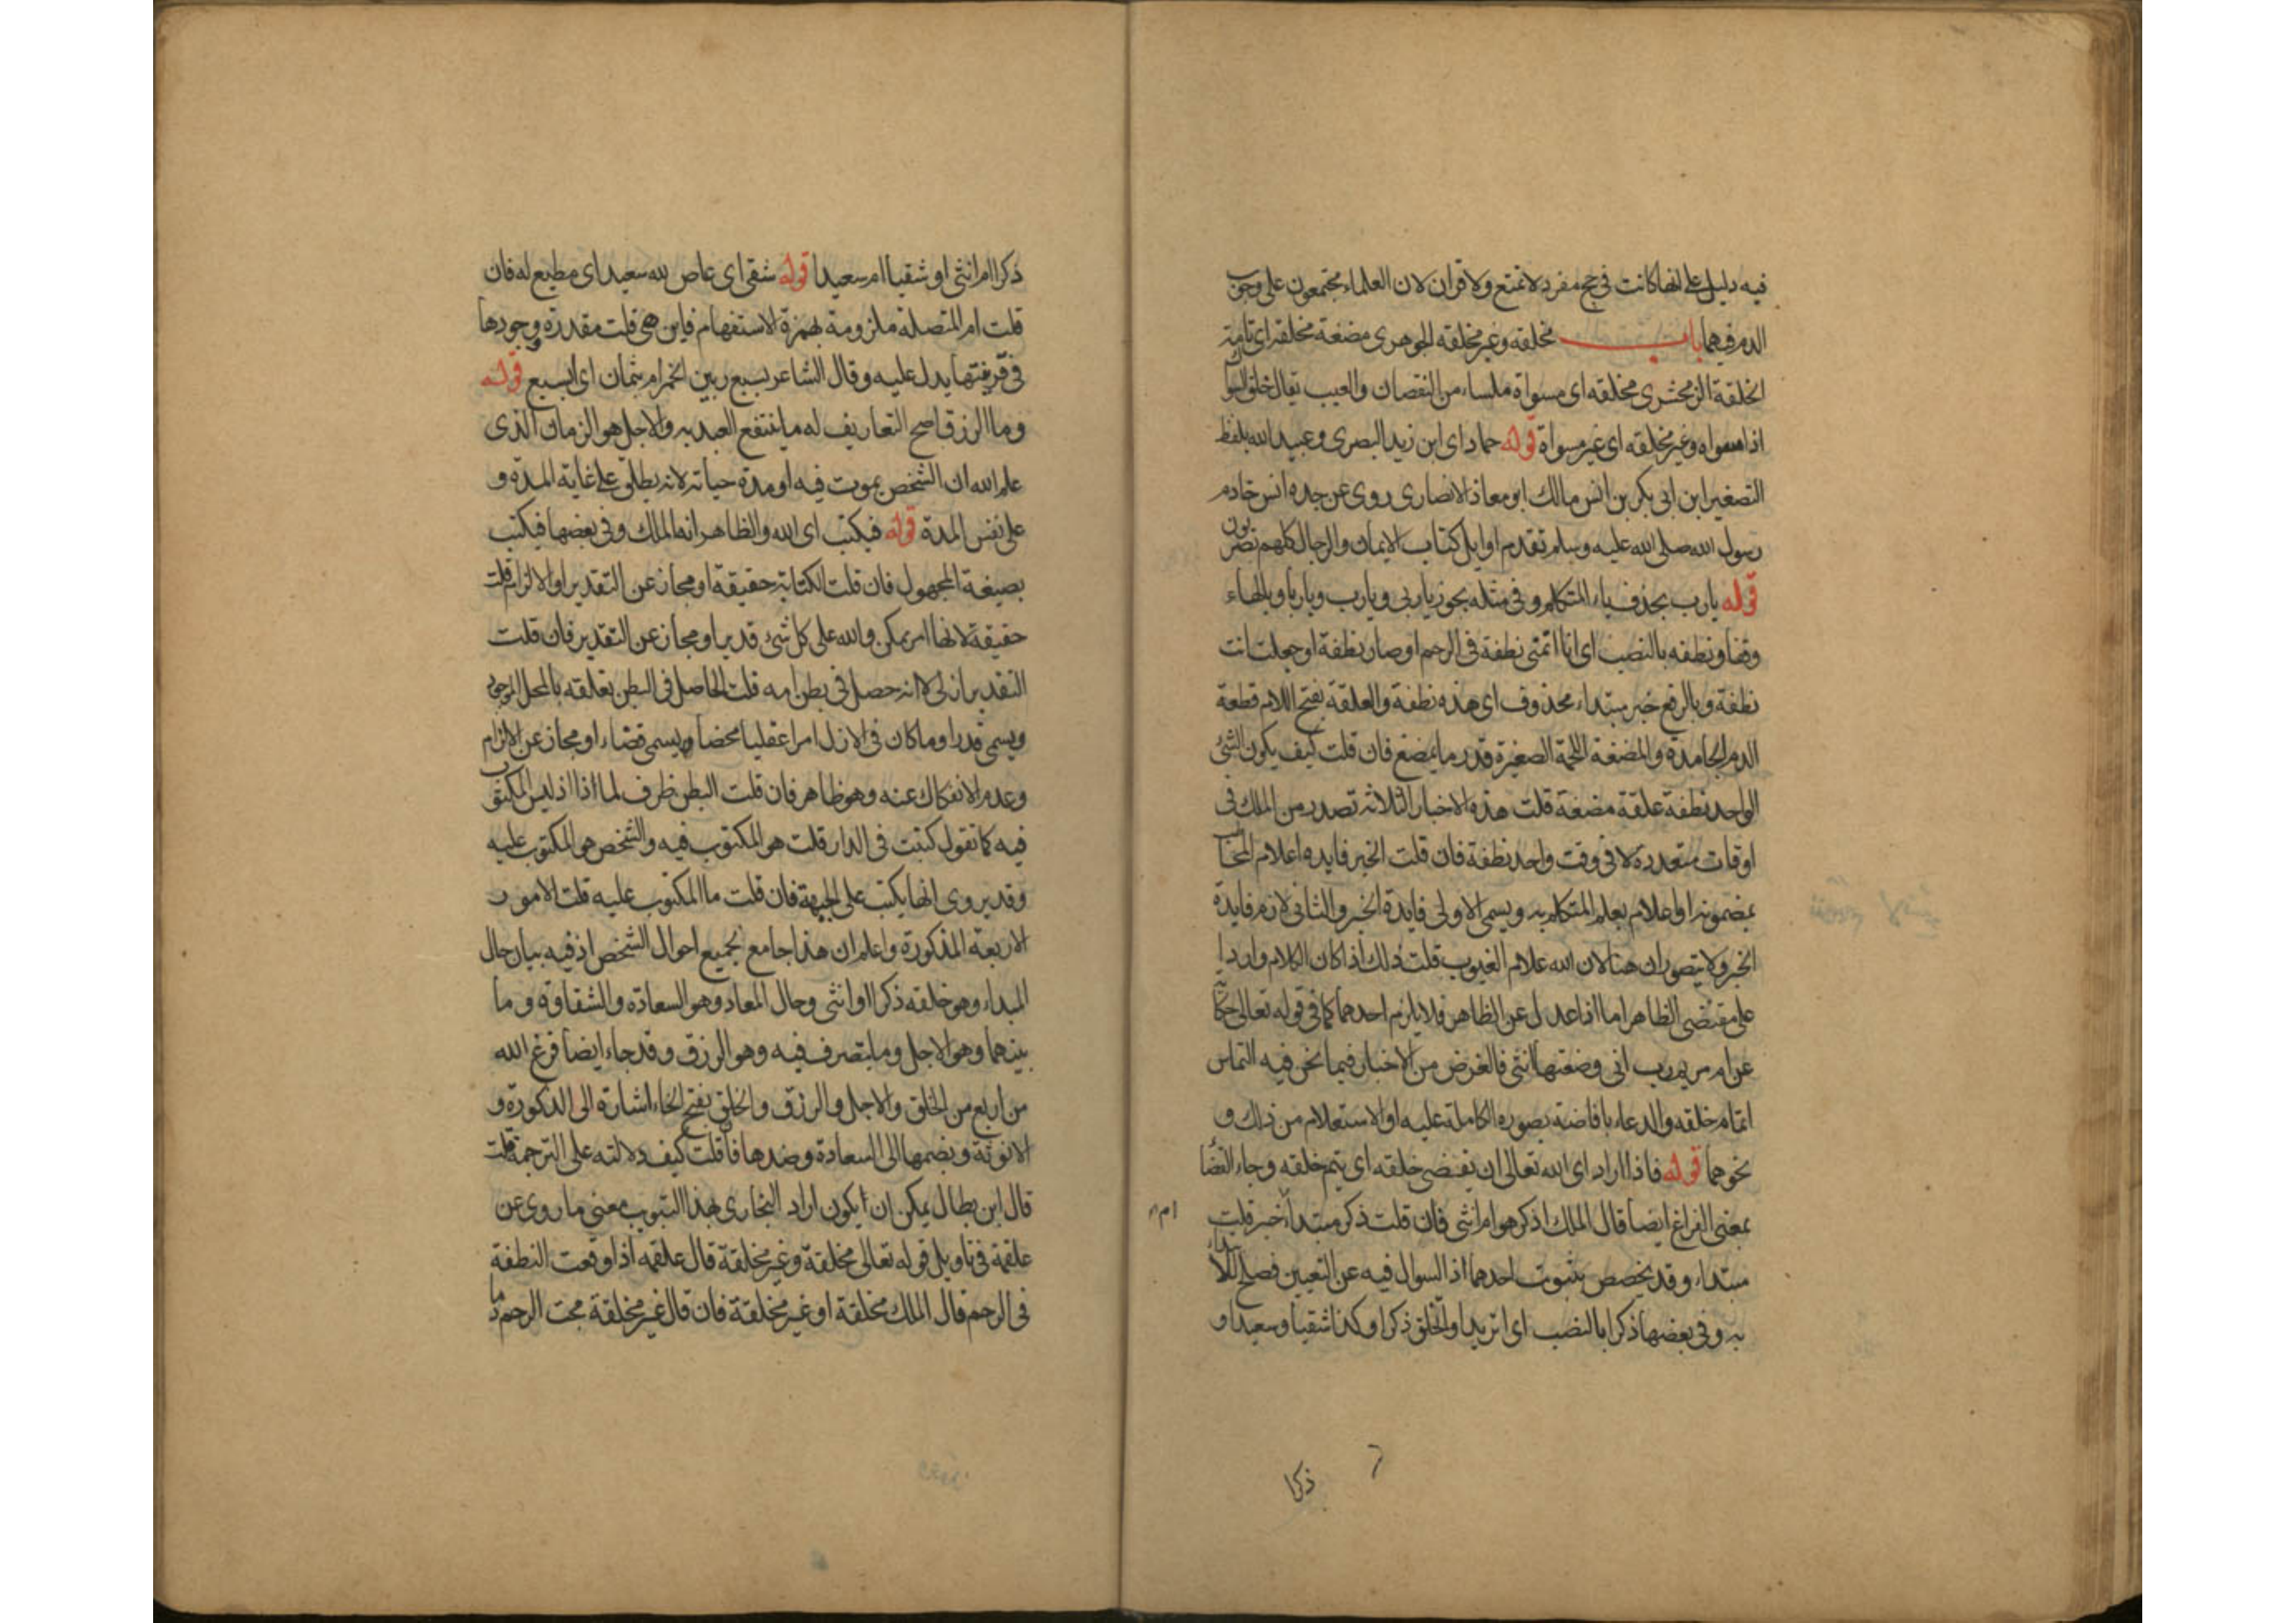 فيه دليل على انها كانت في حج مفرد لا تمتع ولا قران لان العلماء مجتمعون على وجوب
الدم فيهما باب مخلقه وغير مخلقه الجوهرى مضغة مخلقة اى تامة
الخلقة الزمخشرى مخلقه اى مسواة ملساء من النقصان والعيب يقال خلق السواك
اذا سواه وغير مخلقه اى غير مسواة قوله حماد اى ابن زيد البصرى وعبيد الله بلفظ
التصغير ابن ابى بكر بن انس مالك ابو معاذ الانصارى روى عن جده انس خادم
رسول الله صلى الله عليه وسلم تقدم اوايل كتاب الايمان والرجال كلهم بصريون
قوله يارب بحذف ياء المتكلم وفى مثله يجوز ياربى ويارب وياربا وبالهاء
وقفا ونطفه بالنصب اى انا اتمنى نطفة فى الرحم او صار نطفة او جعلت انت
نطفة وبالرفع خبر مبتداء محذوف اى هذه نطفة والعلقة بفتح اللام قطعة
الدم الجامدة والمضغة اللحمة الصغيرة قدر ما يمضغ فان قلت كيف يكون الشئ
الواحد نطفة علقة مضغة قلت هذه الاخبار الثلاثة تصدر من الملك فى
اوقات متعددة لا فى وقت واحد نطفة فان قلت الخبر فايده اعلام المخاطب
بمضمونه او اعلام بعلم المتكلم به ويسمى الاولى فايدة الخبر والثانى لازم فايدة
الخبر ولا يتصوران هنا لان الله علام الغيوب قلت ذلك اذا كان الكلام واردا
على مقتضى الظاهر اما اذا عدل عن الظاهر فلا يلزم احدهما كما فى قوله تعالى حكاية
عن ام مريم رب انى وضعتها انثى فالغرض من الاخبار فيما نحن فيه التماس
اتمام خلقه والدعاء بافاضة بصوره الكاملة عليه او الاستعلام من ذلك و
نحوهما قوله فاذا اراد اى الله تعالى ان يقضى خلقه اى يتم خلقه وجاء القضاء
بمعنى الفراغ ايضا قال الملك اذكر هو ام انثى فان قلت ذكر مبتدا خبر قلت
ام
مبتداء وقد يخصص بثبوت احدهما اذ السوال فيه عن التعيين فصلح للابتداء
به وفى بعضها ذكرا بالنصب اى اتريد او الخلق ذكرا وكذا شقيا وسعيدا و
ذكرا
ذكرا ام انثى او شقيا ام سعيدا قوله شقى اى عاص لله سعيد اى مطيع له فان
قلت ام المتصلة ملزومة بهمزة الاستفهام فاين هى قلت مقدرة وجودها
فى قرينتها يدل عليه وقال الشاعر بسبع رمين الجمر ام بثمان اى ابسبع قوله
وما الرزق اصح التعاريف له ما ينتفع العبد به والاجل هو الزمان الذى
علم الله ان الشخص يموت فيه او مدة حياته لانه يطلق على غاية المدة و
على نفس المدة قوله فيكتب اى الله والظاهر انه الملك وفى بعضها فيكتب
بصيغة المجهول فان قلت الكتابة حقيقة او مجاز عن التقدير او الالزام قلت
حقيقة لانها امر يمكن والله على كل شئ قدير او مجاز عن التقدير فان قلت
التقدير ازلى لا انه حصل فى بطن امه قلت الحاصل فى البطن تعلقه بالمحل الموجود
ويسمى قدرا وما كان فى الازل امرا عقليا محضا ويسمى قضاء او مجاز عن الالزام
وعدم الانفكاك عنه وهو ظاهر فان قلت البطن ظرف لما اذا اذ ليس المكتوب
فيه كما تقول كتبت فى الدار قلت هو المكتوب فيه والشخص هو المكتوب عليه
وقد يروى انها يكتب على الجبهة فان قلت ما المكتوب عليه قلت الامور
الاربعة المذكورة واعلم ان هذا جامع لجميع احوال الشخص اذ فيه بيان حال
المبداء وهو خلقه ذكرا او انثى وحال المعاد وهو السعادة والشقاوة وما
بينهما وهو الاجل وما يتصرف فيه وهو الرزق وقد جاء ايضا فرغ الله
من اربع من الخلق والاجل والرزق والخلق بفتح الخاء اشارة الى الذكورة و
الانوثة وبضمها الى السعادة وضدها فان قلت كيف دلالته على الترجمة قلت
قال ابن بطال يمكن ان يكون اراد البخارى بهذا التبويب معنى ما روى عن
علقمة فى تاويل قوله تعالى مخلقة وغير مخلقة قال علقمه اذا وقعت النطفة
فى الرحم قال الملك مخلقة او غير مخلقة فان قال غير مخلقة مجت الرحم دما